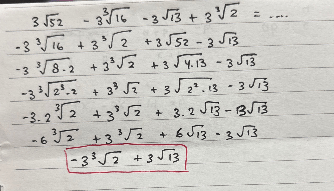 3√52 - 3∛16 - 3√13 + 3∛2 = ....
-3∛16 + 3∛2 + 3√52 - 3√13
-3∛8.2 + 3∛2 + 3√4.13 - 3√13
-3∛2³.2 + 3∛2 + 3√2².13 - 3√13
-3.2∛2 + 3∛2 + 3.2√13 - 3√13
-6∛2 + 3∛2 + 6√13 - 3√13
-3∛2 + 3√13